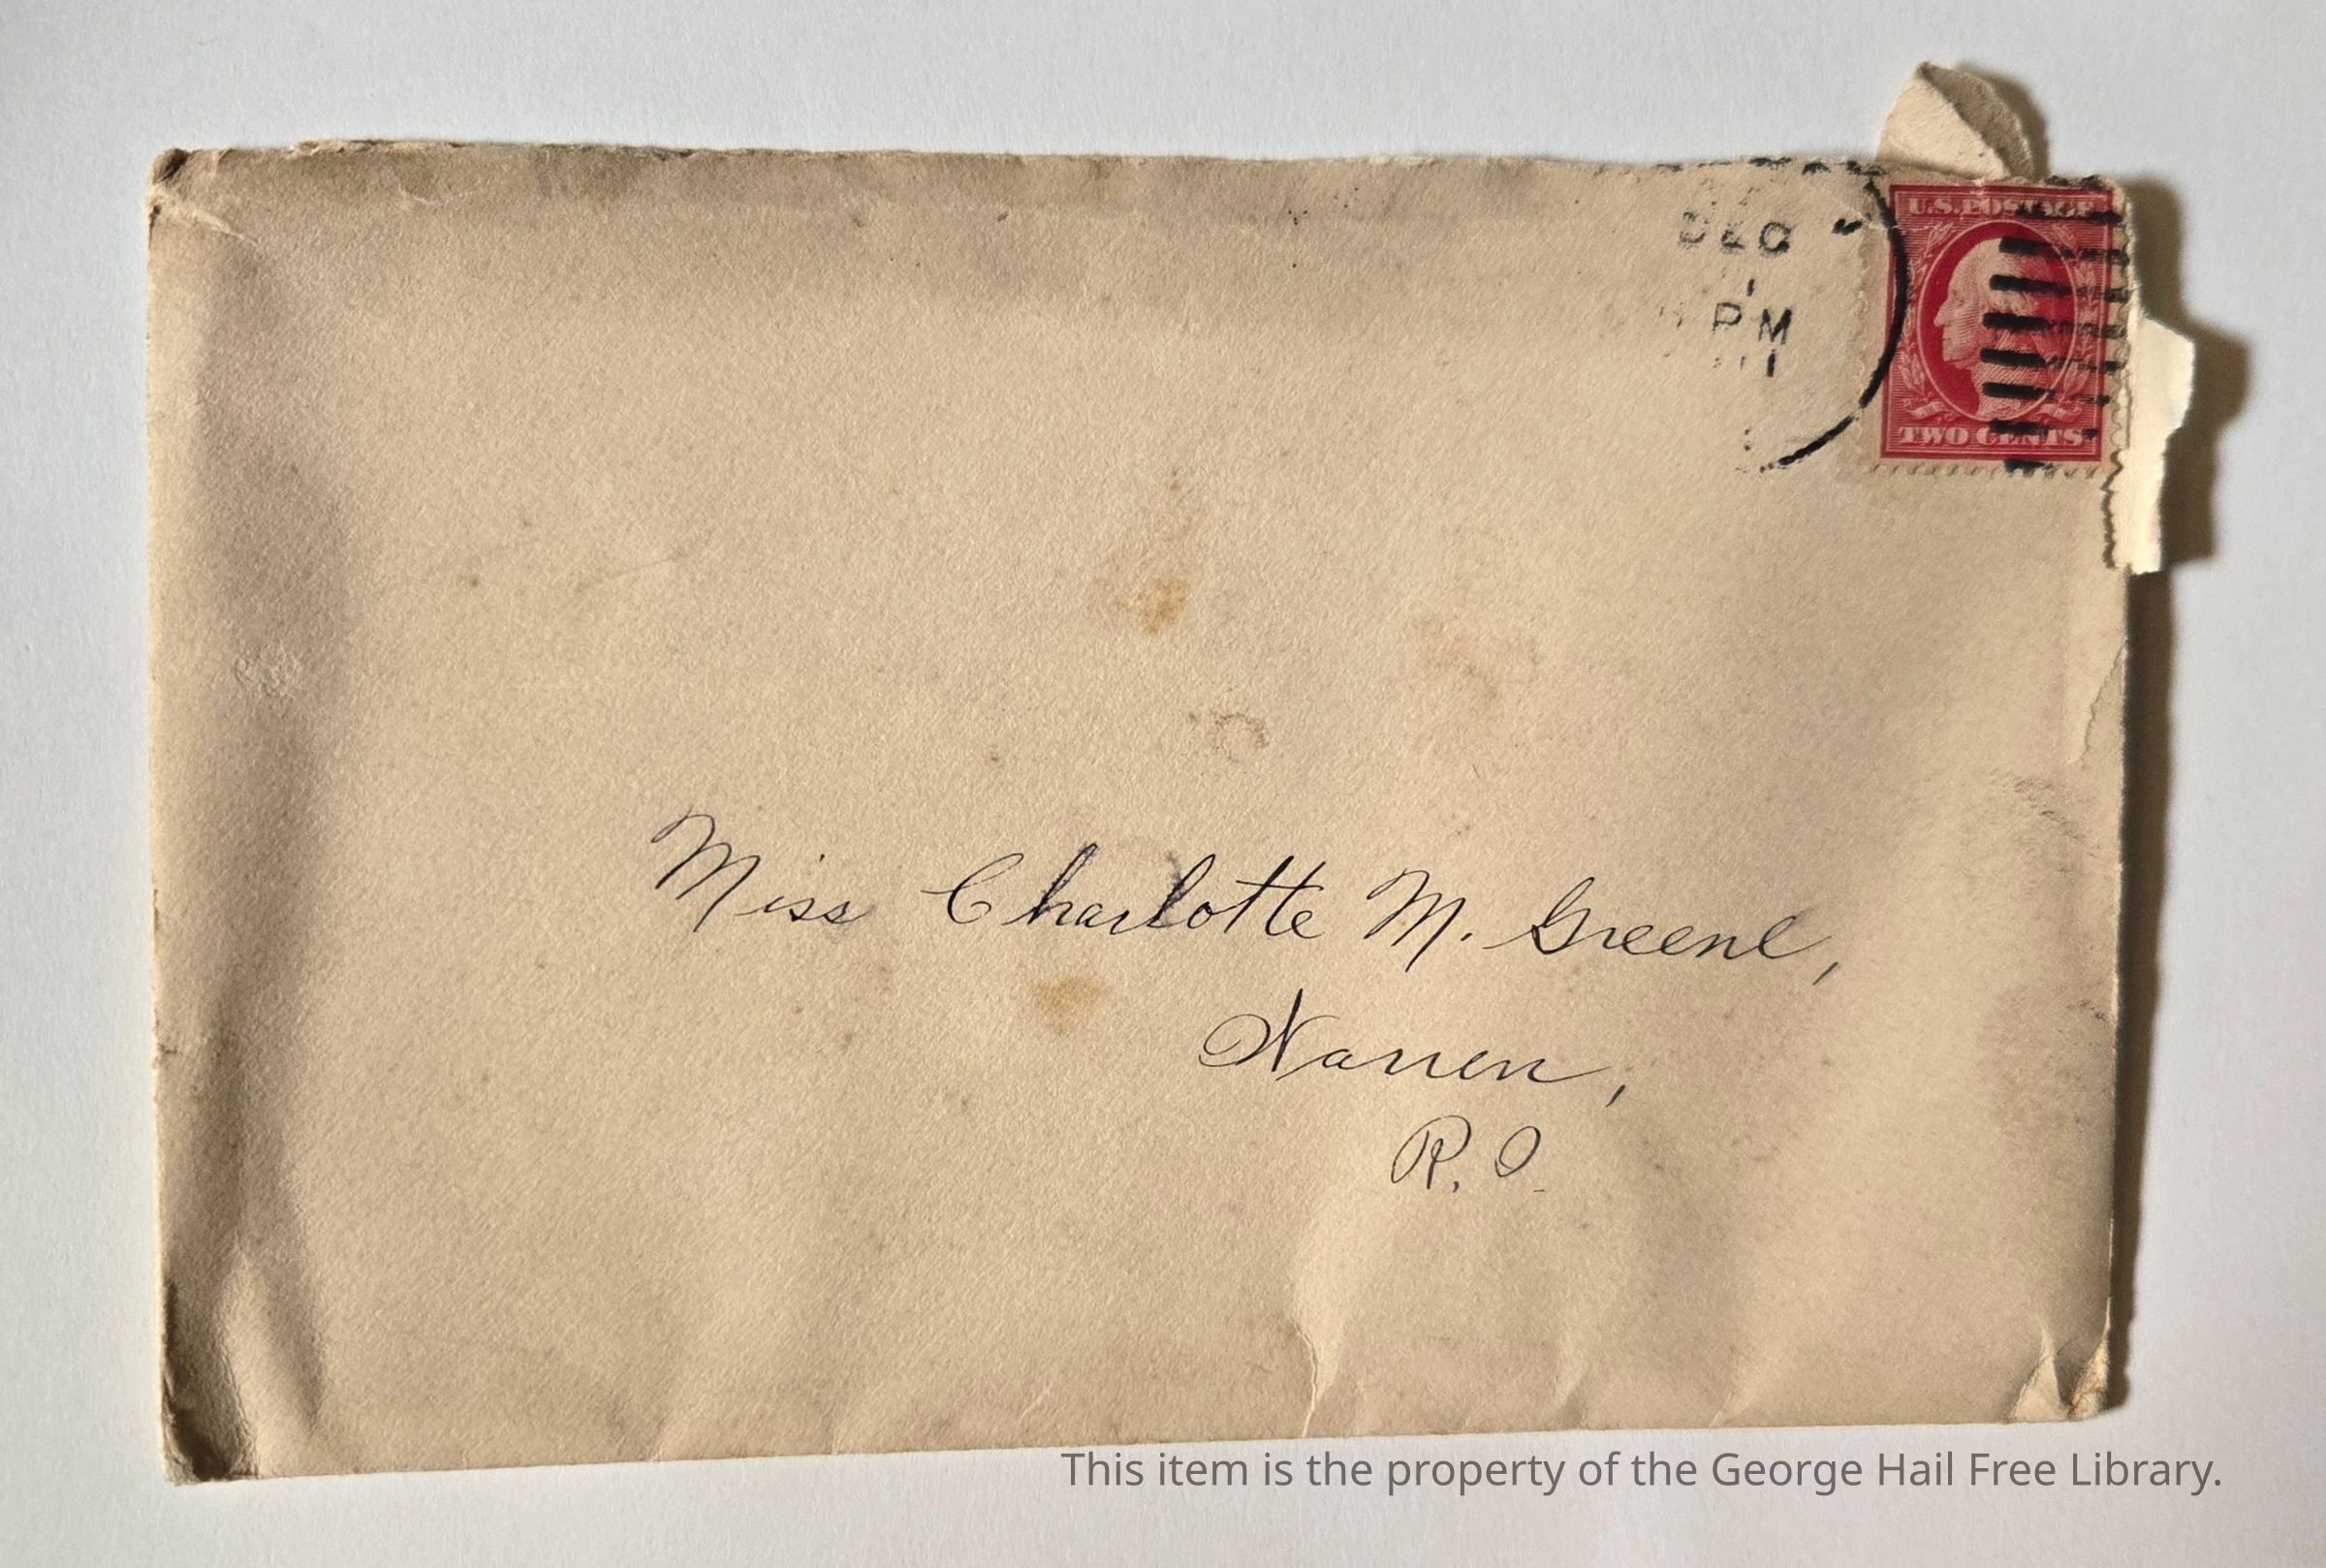 U.S. POSTAGE
DEC
1
PM
TWO CENTS
Miss Charlotte M. Greene,
Warren,
R.I.
This item is the property of the George Hail Free Library.